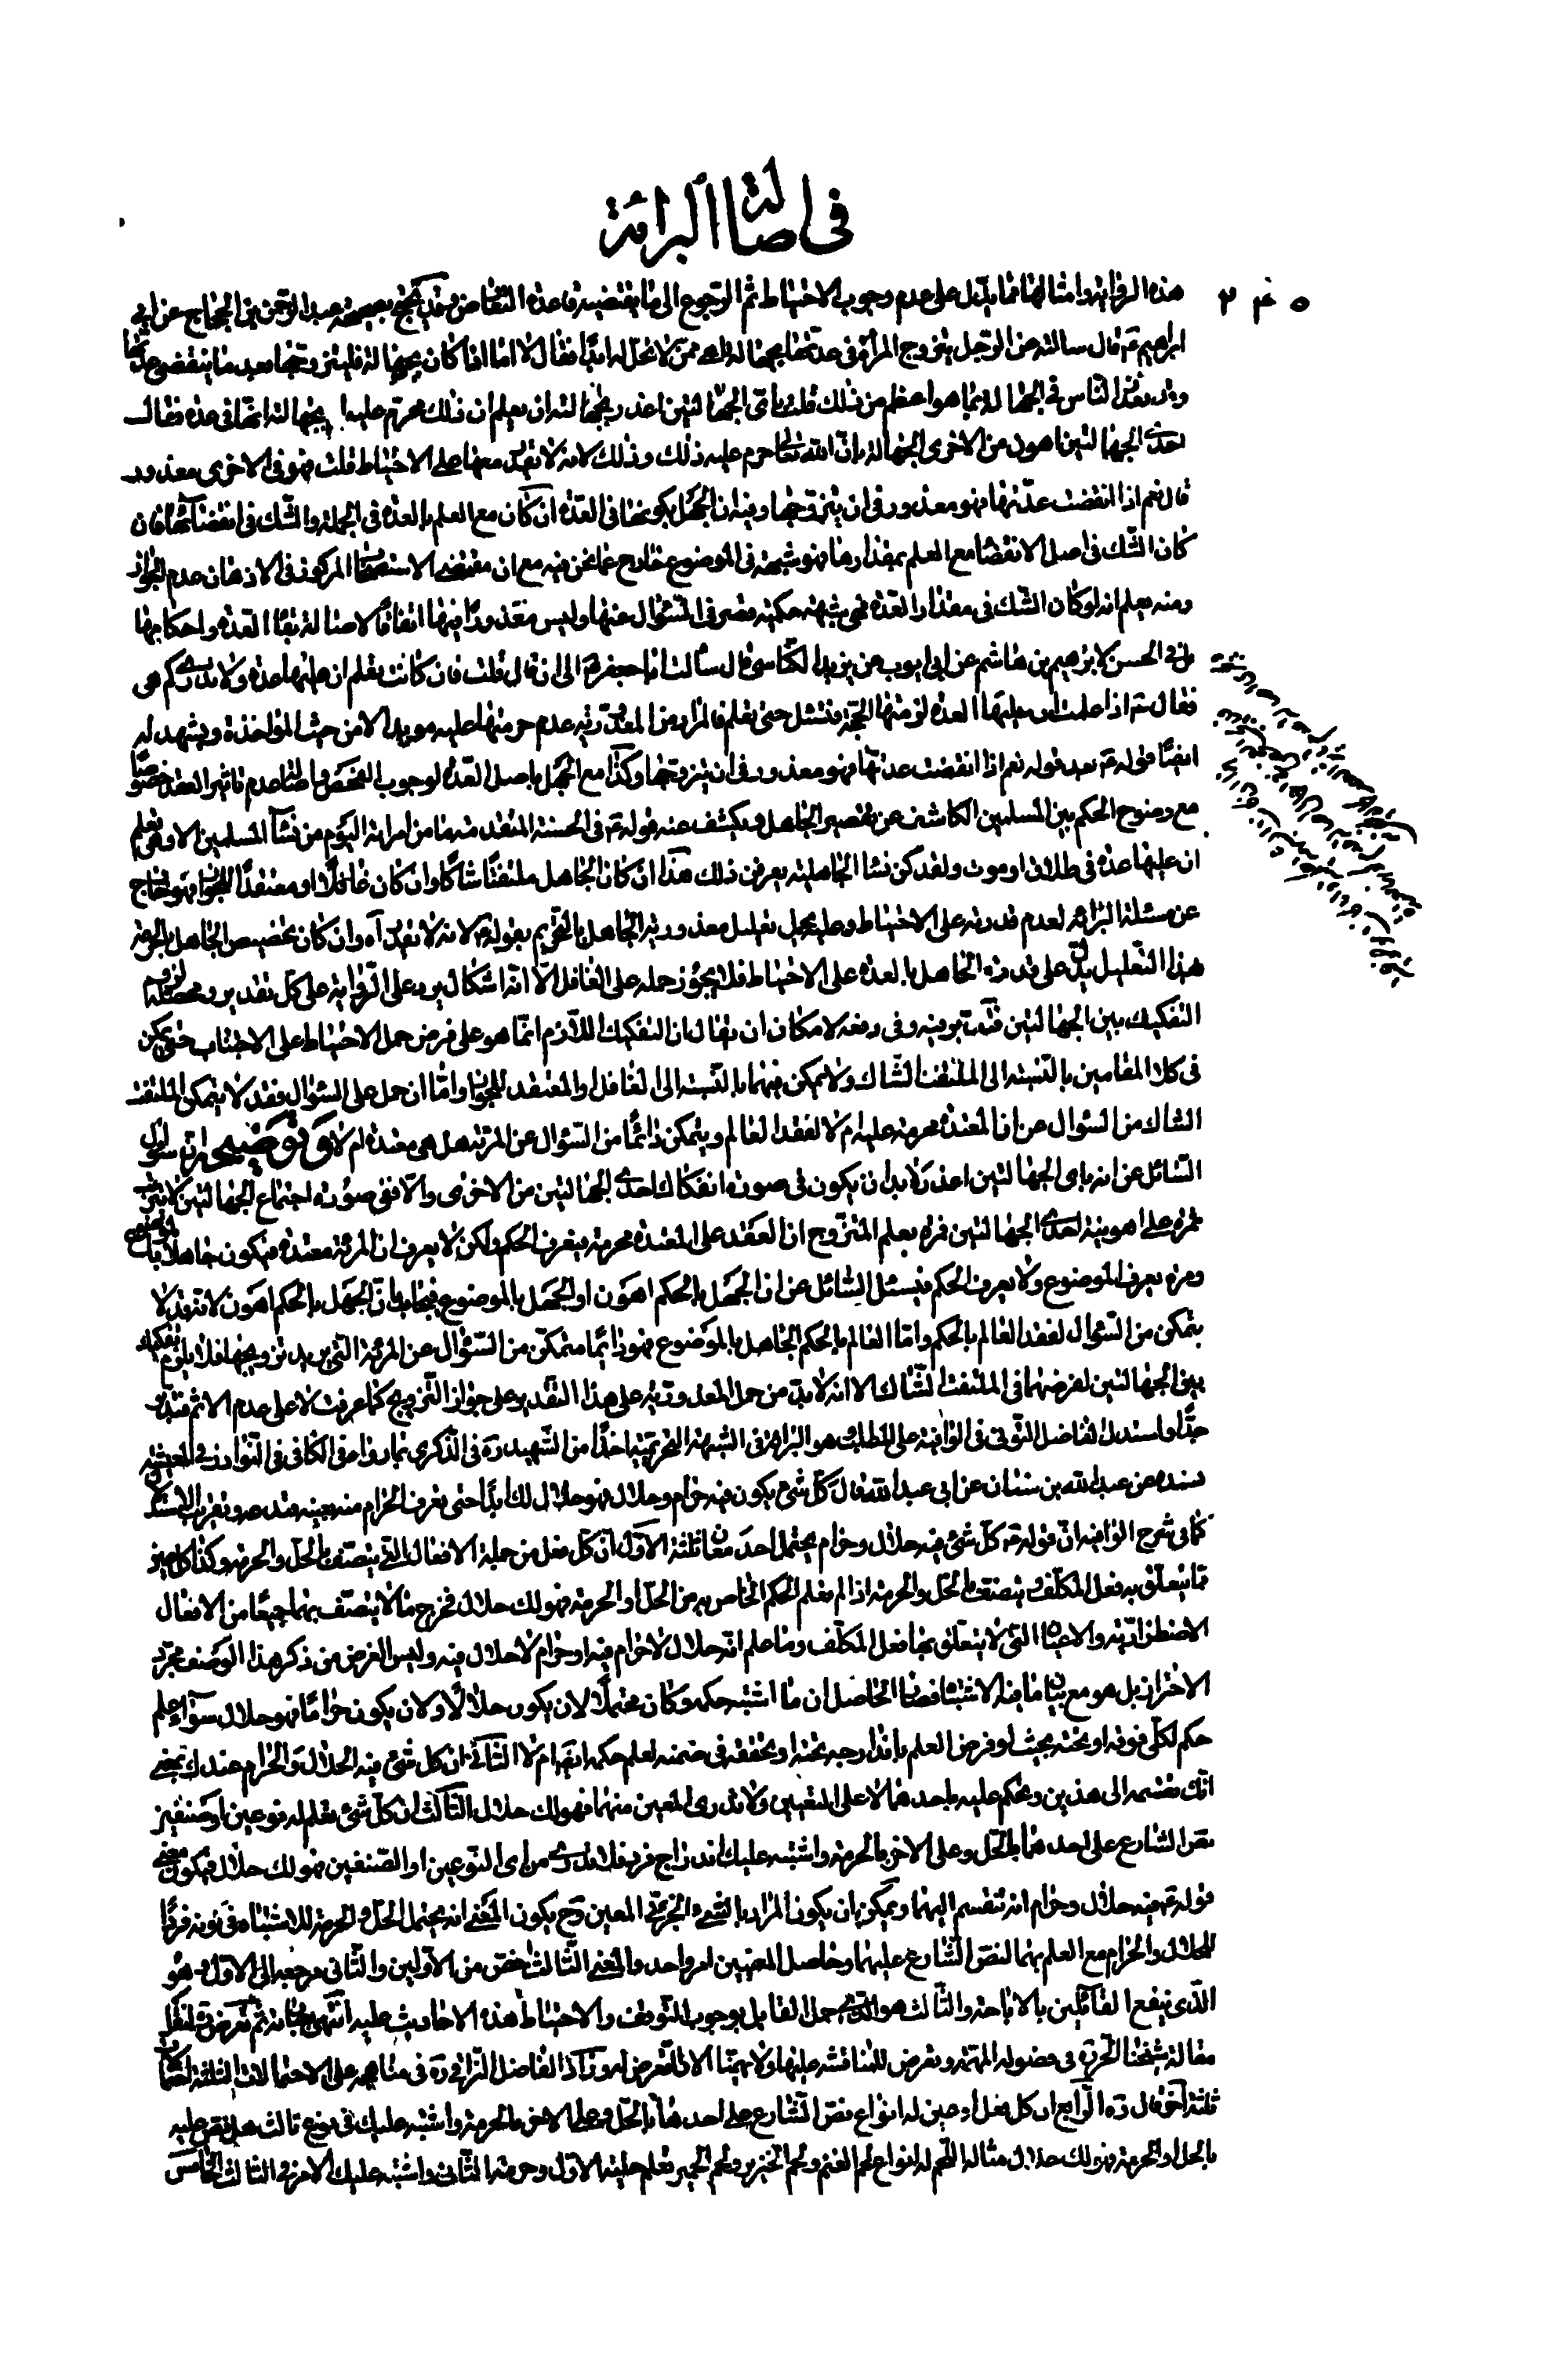 في اصالة البرائة
هذه الرواية وامثالها مما يدل على عدم وجوب الاحتياط ثم الرجوع الى ما يقتضيه قاعدة التعارض وقد يحتج بصحيحة عبد الرحمن بن الحجاج عن ابي
ابراهيم ع قال سالته عن الرجل يتزوج المرأة في عدتها بجهالة اهي ممن لا تحل له ابدًا فقال لا اما اذا كان بجهالة فليتزوجها بعد ما ينقضى عدتها
وقد يعذر الناس في الجهالة بما هو اعظم من ذلك قلت باي الجهالتين اعذر بجهالته ان يعلم ان ذلك محرم عليه ام بجهالته انها في عدة فقال
احدى الجهالتين اهون من الاخرى الجهالة بان الله تعالى حرم عليه ذلك وذلك لانه لا يقدر معها على الاحتياط قلت فهو في الاخرى معذور
قال نعم اذا انقضت عدتها فهو معذور في ان يتزوجها وفيه ان الجهل بكونها في العدة ان كان مع العلم بالعدة في الجملة والشك في انقضائها فان
كان الشك في اصل الانقضاء مع العلم بمقدارها فهو شبهة في الموضوع خارج عما نحن فيه مع ان مقتضى الاستصحاب المركوز في الاذهان عدم الجواز
ومنه يعلم انه لو كان الشك في مقدار العدة فهي شبهة حكمية قصر في السؤال عنها وليس معذورًا فيها اتفاقًا لاصالة بقاء العدة واحكامها
بل في الحسن لابرهيم بن هاشم عن ابي ايوب عن يزيد الكناسي قال سألت ابا جعفر ع الى ان قال قلت فان كانت تعلم ان عليها عدة ولا تدرى كم هى
فقال ع اذا علمت ان عليها العدة لزمتها الحجة فتسئل حتى تعلم فالمراد من المعذورية عدم حرمتها عليه مؤبدا لا من حيث المؤاخذة ويشهد له
ايضًا قوله ع بعد قوله نعم اذا انقضت عدتها فهو معذور في ان يتزوجها وكذا مع الجهل باصل العدة لوجوب الفحص واصالة عدم تاثير العقد خصوصًا
مع وضوح الحكم بين المسلمين الكاشف عن تقصير الجاهل ويكشف عنه قوله ع في الحسنة المتقدمة ما من امراة اليوم من نسآء المسلمين الا وهي تعلم
ان عليها عدة في طلاق او موت ولقد كن نساء الجاهلية يعرفن ذلك هذا ان كان الجاهل ملتفتًا شاكًا وان كان غافلًا او معتقدًا للجواز فهو خارج
عن مسئلة البرائة لعدم قدرته على الاحتياط وعليه يحمل تعليل معذورية الجاهل بالتحريم بقوله ع لانه لا يقدر آه وان كان تخصيص الجاهل بالحرمة
بهذا التعليل يدل على قدرة الجاهل بالعدة على الاحتياط فلا يجوز حمله على الغافل الا انه اشكال يرد على الرواية على كل تقدير ومحصله لزوم
التفكيك بين الجهالتين فتدبر فيه وفي دفعه لامكان ان يقال ان التفكيك اللازم انما هو على فرض حمل الاحتياط على الاجتناب حتى يمكن
في كلا المقامين بالنسبة الى الملتفت الشاك ولا يمكن فيهما بالنسبة الى الغافل والمعتقد للجواز واما ان حمل على السؤال فقد لا يتمكن الملتفت
الشاك من السؤال عن ان المعتدة محرمة عليه ام لا لفقد العالم ويتمكن دائمًا من السؤال عن المرئة هل هى معتدة ام لا وتوضيحه انه سؤال
السائل عن انه باى الجهالتين اعذر لا بد ان يكون في صورة انفكاك احدى الجهالتين من الاخرى والا ففي صورة اجتماع الجهالتين لا يترتب
ثمرة على اهونية احدى الجهالتين فمرة يعلم المتزوج ان العقد على المعتدة محرمة فيعرف الحكم ولكن لا يعرف ان المرئة معتدة فيكون جاهلا بالموضوع
ومرة يعرف الموضوع ولا يعرف الحكم فيسئل السائل عن ان الجهل بالحكم اهون او الجهل بالموضوع فيجاب بان الجهل بالحكم اهون لانه قد لا
يتمكن من السؤال لفقد العالم بالحكم واما العالم بالحكم الجاهل بالموضوع فهو دائمًا متمكن من السؤال عن المرئة التي يريد تزويجها فلا يلزم تفكيك
بين الجهالتين لفرضهما في الملتفت الشاك الا انه لا بد من حمل المعذورية على هذا التقدير على جواز التزويج كما عرفت لا على عدم الاثم فتدبر
جدًا واستدل الفاضل التوني في الوافية على المطلب وهو البرائة في الشبهة التحريمية اخذًا من الشهيد ره في الذكرى بما رواه في الكافي في النوادر في المعيشة
بسنده عن عبد الله بن سنان عن ابي عبد الله قال كل شىء يكون فيه حرام وحلال فهو حلال لك ابدًا حتى تعرف الحرام منه بعينه فتدعه وتقريب الاستدلال
كما في شرح الوافية ان قوله ع كل شئ فيه حلال وحرام يحتمل احد معان ثلثة الاول ان كل فعل من جملة الافعال التي يتصف بالحل والحرمة وكذا كل عين
مما يتعلق به فعل المكلف ويتصف بالحل والحرمة اذا لم يعلم الحكم الخاص به من الحل او الحرمة فهو لك حلال فخرج ما لا يتصف بهما جميعًا من الافعال
الاضطرارية والاعيان التي لا يتعلق بها فعل المكلف وما علم انه حلال لا حرام فيه او حرام لا حلال فيه وليس الغرض من ذكر هذا الوصف مجرد
الاحتراز بل هو مع بيان ما فيه الاشتباه فصار الحاصل ان ما اشتبه حكمه وكان محتملًا لان يكون حلالًا ولان يكون حرامًا فهو حلال سواء علم
حكم لكلي فوقه او تحته بحيث لو فرض العلم باندراجه تحته او تحققه في ضمنه لعلم حكمه ايضا ام لا الثاني ان كل شئ فيه الحلال والحرام عندك بمعنى
انك تقسمه الى هذين وتحكم عليه باحدهما لا على التعيين ولا تدرى المعين منهما فهو لك حلال الثالث ان كل شئ تعلم له نوعين او صنفين
نص الشارع على احدهما بالحل وعلى الاخر بالحرمة واشتبه عليك اندراج فرد فلا تدرى من اى النوعين او الصنفين فهو لك حلال فيكون معنى
قوله ع فيه حلال وحرام انه تنقسم اليهما ويمكن ان يكون المراد بالشئ الجزئي المعين وح يكون المعنى انه يحتمل الحل والحرمة للاشتباه في كونه فردًا
للحلال والحرام مع العلم بهما لنص الشارع عليهما وحاصل المعنيين امر واحد والمعنى الثالث اخص من الاولين والثاني مرجعه الى الاول وهو
الذى ينفع القائلين بالاباحة والثالث هو الذى حمل القايل بوجوب التوقف والاحتياط هذه الاحاديث عليه انتهى ثم تعرض ره لنقل
مقالة شيخنا الحر ره في فصوله المهمة وتعرض للمناقشة عليها ولا يهمنا الان التعرض له وزاد الفاضل النراقي ره في مناهجه على الاحتمالات الثلثة احتمالات
ثلثة اخر قال ره الرابع ان كل فعل او عين له انواع نص الشارع على احدها بالحل وعلى الاخر بالحرمة واشتبه عليك في نوع ثالث هل نص عليه
بالحل والحرمة فهو لك حلال مثاله اللحم له انواع لحم الغنم ولحم الخنزير ولحم الحمير تعلم حلية الاول وحرمة الثاني واشتبه عليك الامر في الثالث الخامس